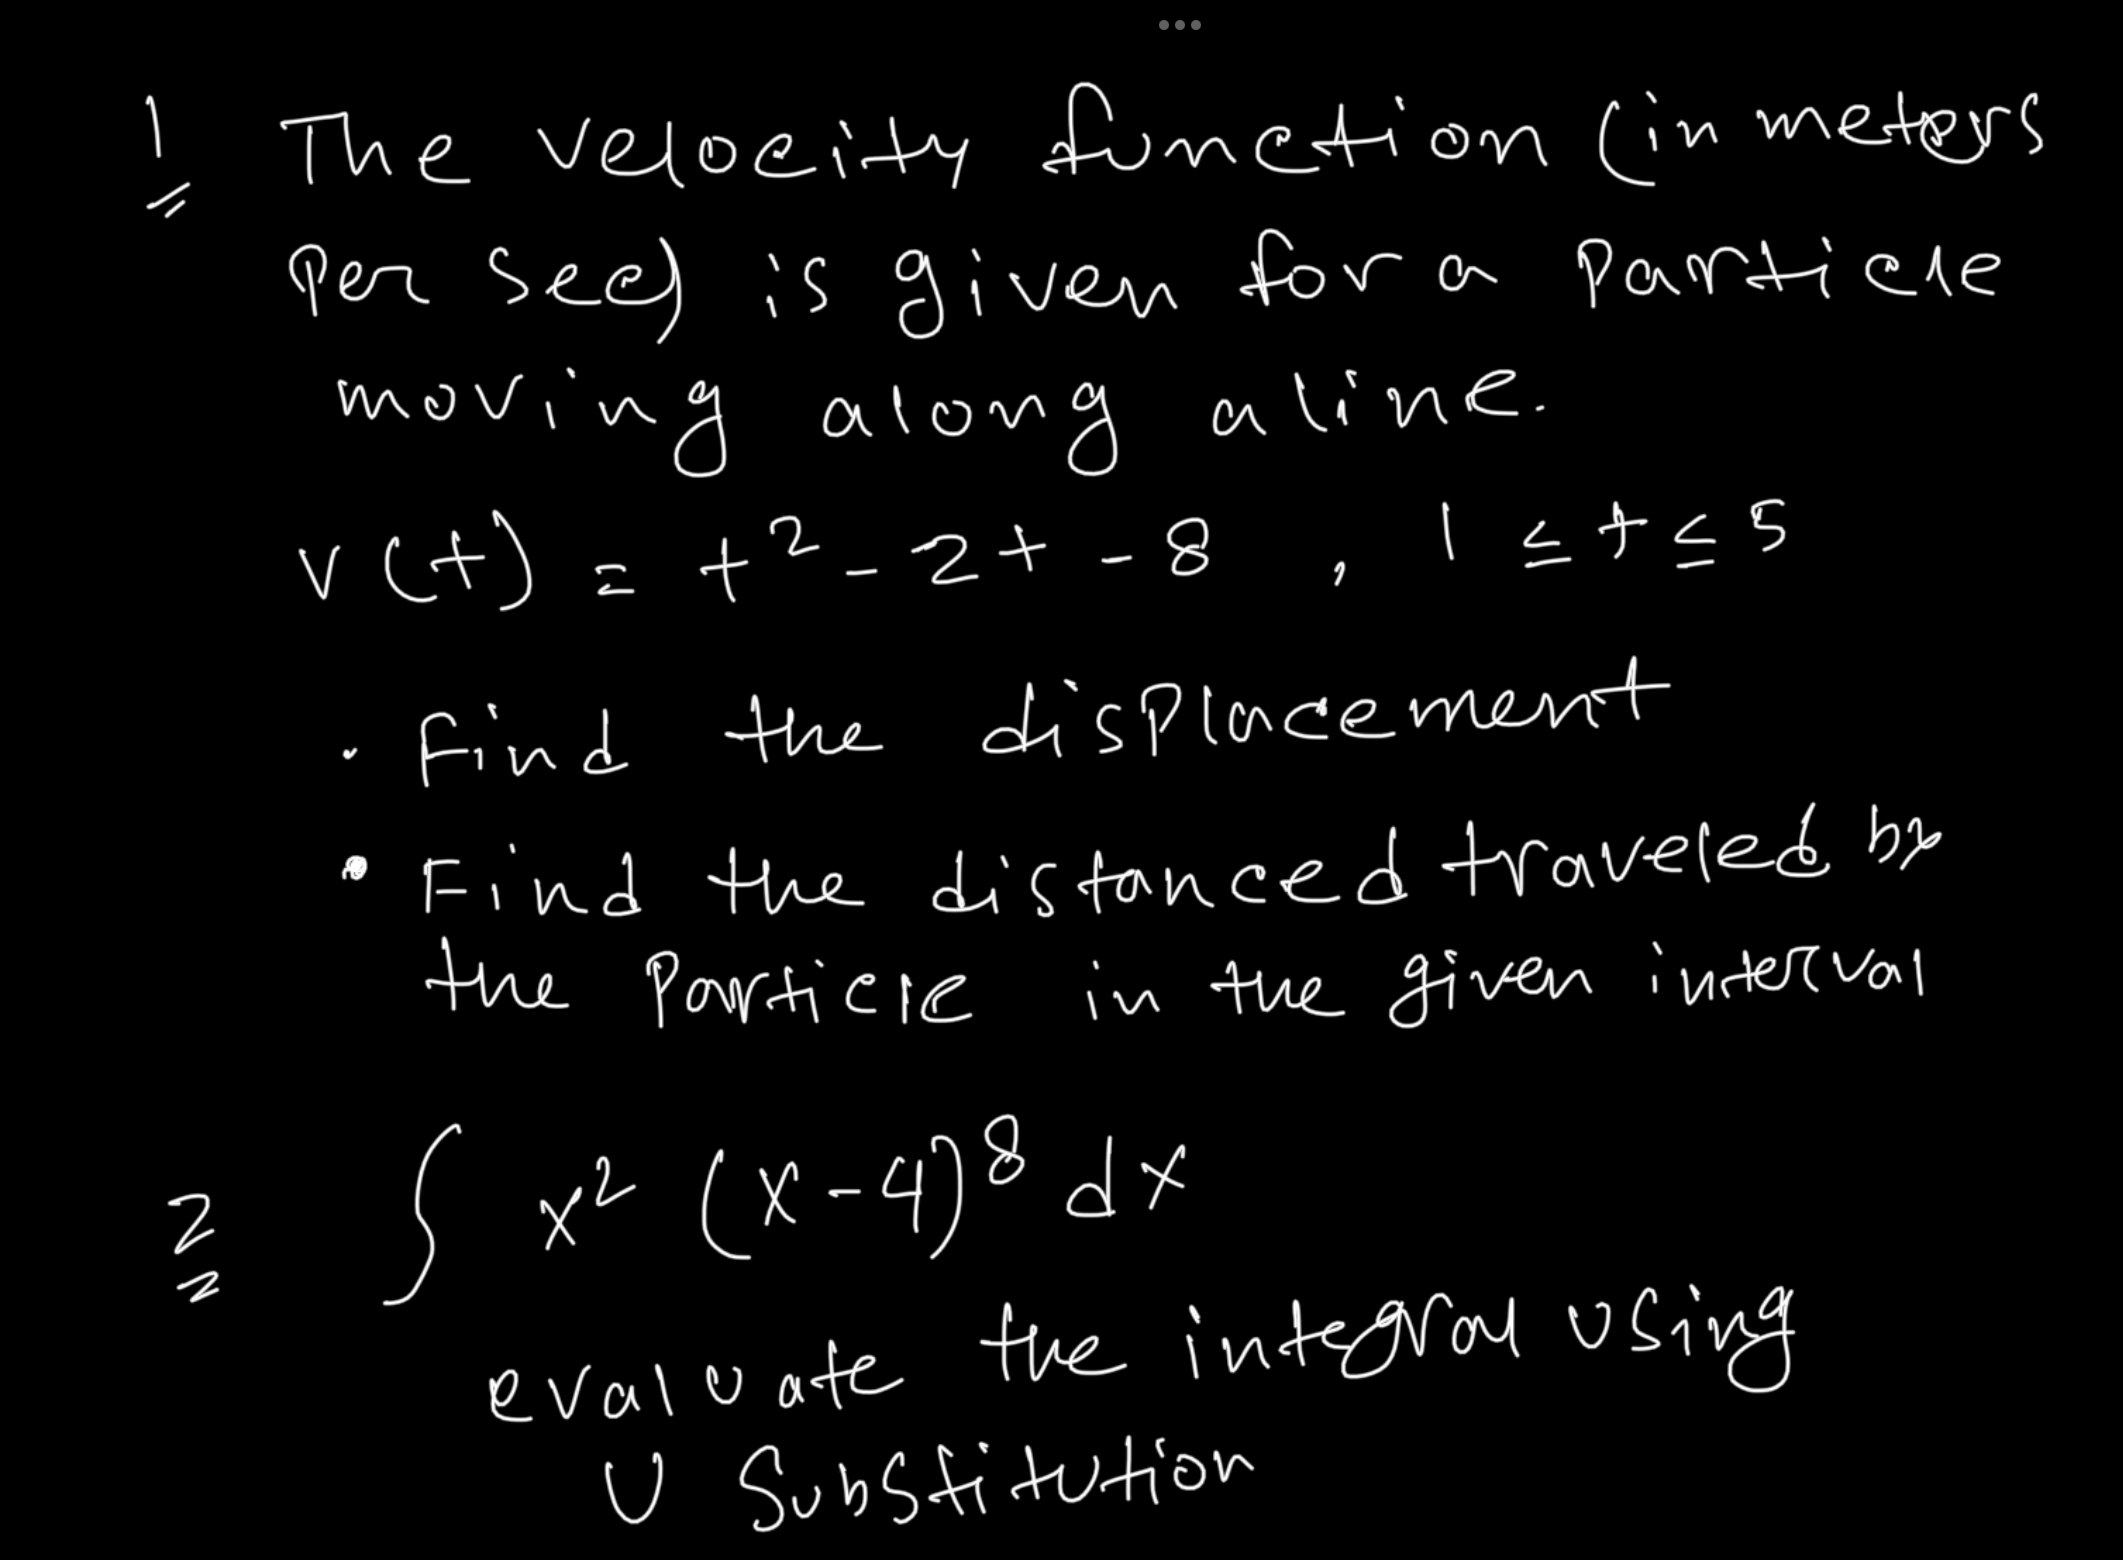 1 The velocity function (in meters
Per sec) is given for a Particle
moving along a line.
v(t) = t² - 2t - 8 , 1 ≤ t ≤ 5
• Find the displacement
• Find the distanced traveled by
the Particle in the given interval
2 ∫ x² (x-4)⁸ dx
evaluate the integral using
U Substitution